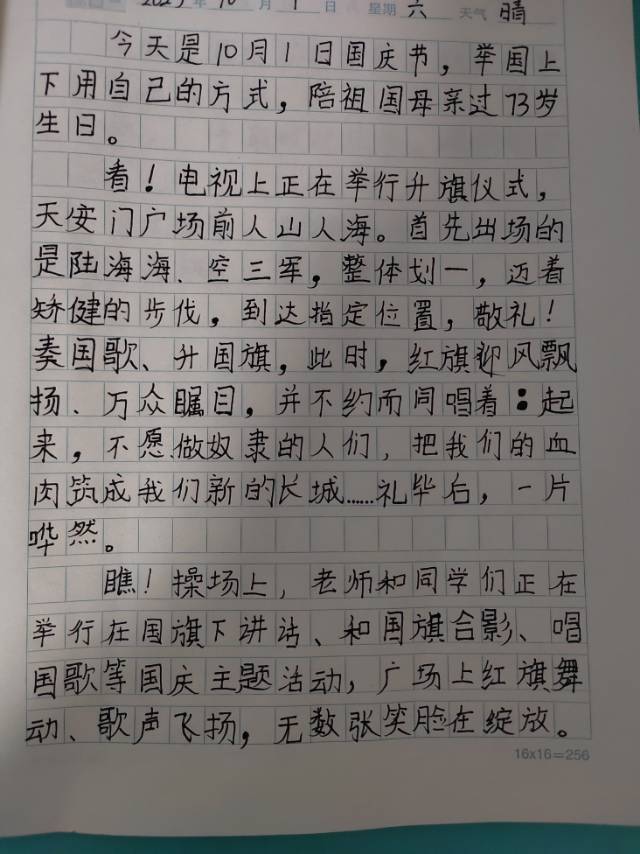 年10月1日 星期六 天气晴
今天是10月1日国庆节，举国上
下用自己的方式，陪祖国母亲过73岁
生日。
看！电视上正在举行升旗仪式，
天安门广场前人山人海。首先出场的
是陆海海、空三军，整体划一，迈着
矫健的步伐，到达指定位置，敬礼！
奏国歌、升国旗，此时，红旗迎风飘
扬、万众瞩目，并不约而同唱着：起
来，不愿做奴隶的人们，把我们的血
肉筑成我们新的长城……礼毕后，一片
哗然。
瞧！操场上，老师和同学们正在
举行在国旗下讲话、和国旗合影、唱
国歌等国庆主题活动，广场上红旗舞
动、歌声飞扬，无数张笑脸在绽放。
16x16=256